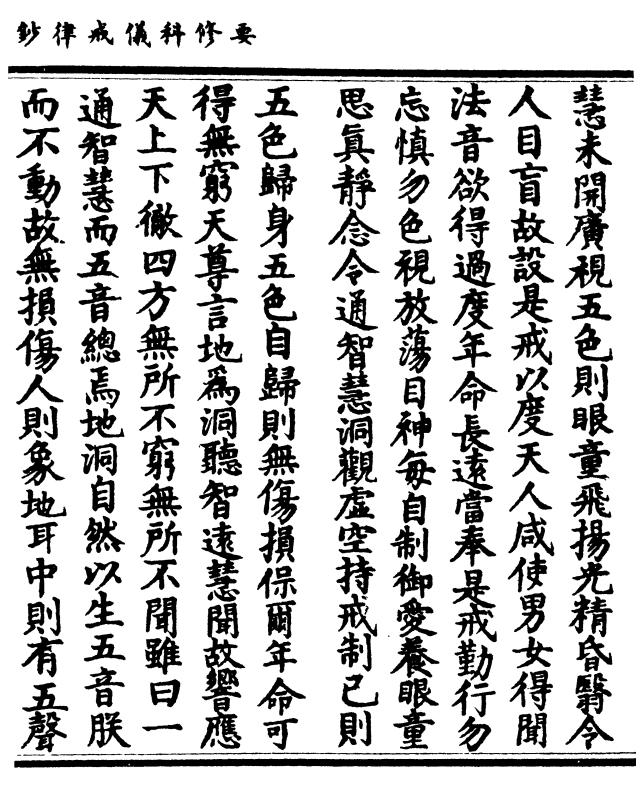 要修科儀戒律鈔
慧未開廣視五色則眼童飛揚光精昏翳令
人目盲故設是戒以度天人咸使男女得聞
法音欲得過度年命長遠當奉是戒勤行勿
忘慎勿色視放蕩目神每自制御愛養眼童
思真靜念令通智慧洞觀虛空持戒制已則
五色歸身五色自歸則無傷損保爾年命可
得無窮天尊言地為洞聽智遠慧聞故響應
天上下徹四方無所不窮無所不聞雖曰一
通智慧而五音總焉地洞自然以生五音朕
而不動故無損傷人則象地耳中則有五聲